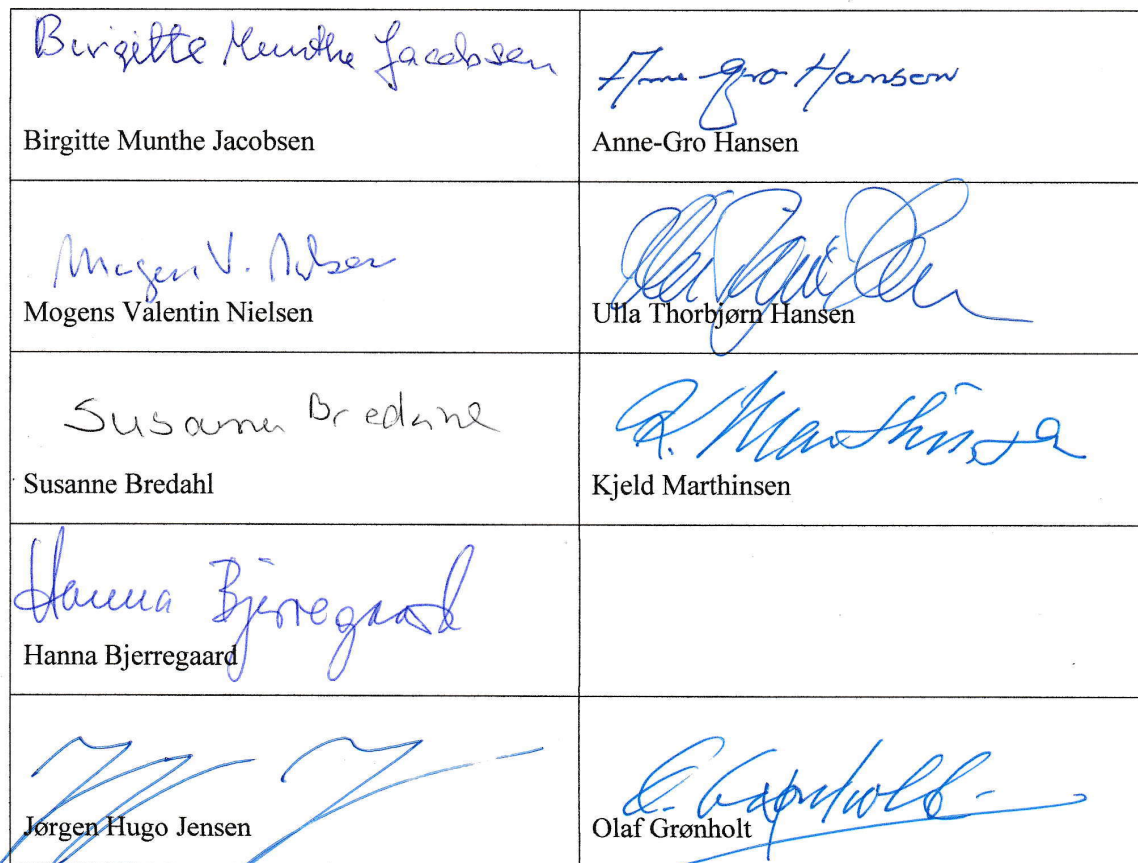 Birgitte Munthe Jacobsen
Anne-Gro Hansen
Birgitte Munthe Jacobsen
Anne-Gro Hansen
Mogens V. Nielsen
Mogens Valentin Nielsen
Ulla Thorbjørn Hansen
Susanne Bredahl
Susanne Bredahl
K. Marthinsen
Kjeld Marthinsen
Hanna Bjerregaard
Hanna Bjerregaard
Jørgen Hugo Jensen
O. Grønholt
Olaf Grønholt